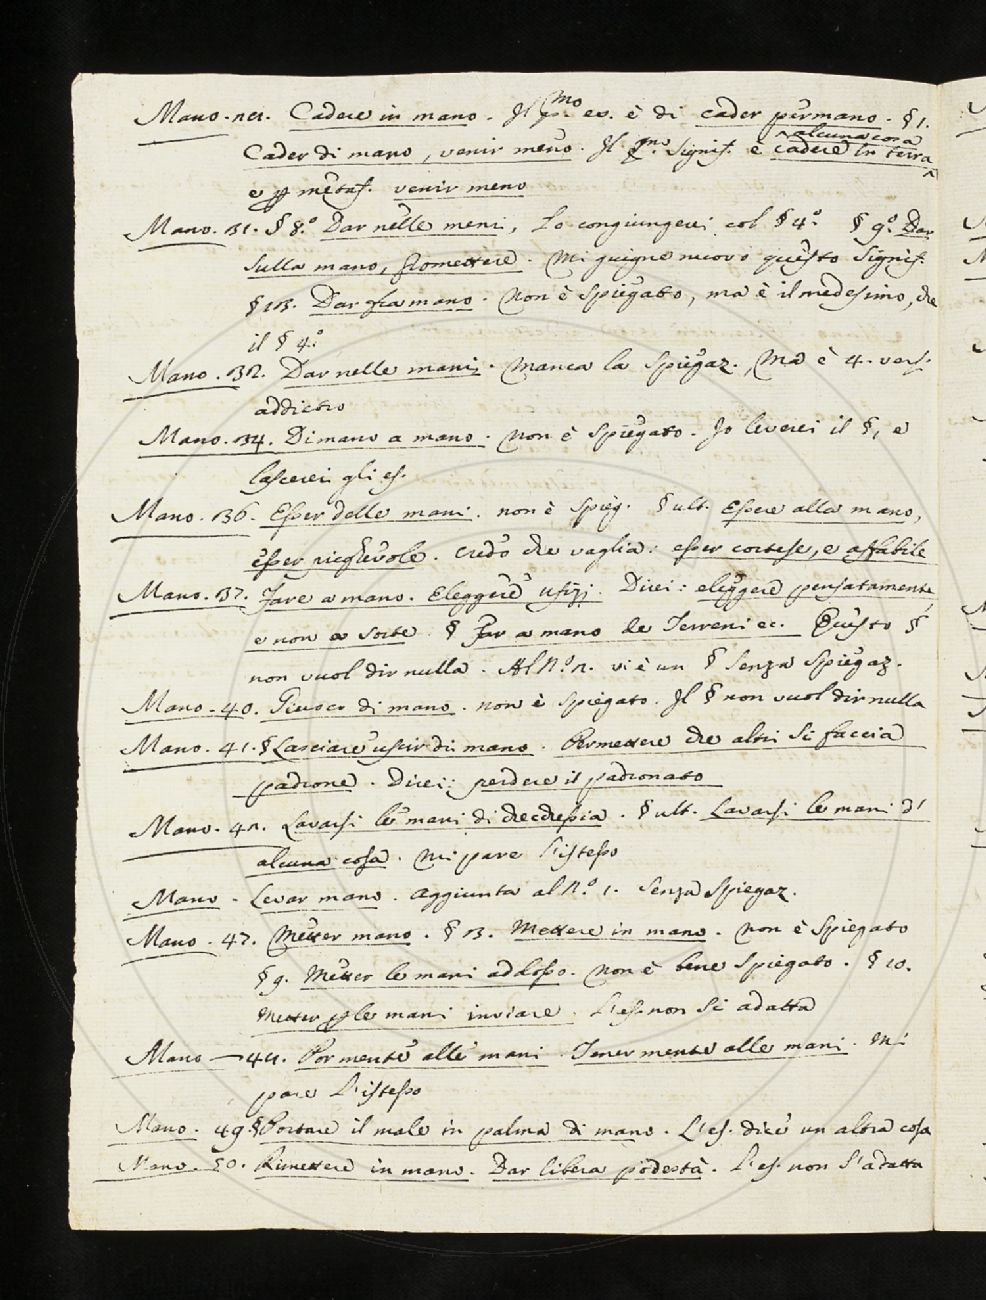 Mano. 21. Cadere in mano. Il pmo es. è di cader per mano. § 1.
alcuna cosa
Cader di mano, venir meno. Il pmo. signif. è cadere in terra
e p metaf. venir meno
Mano. 31. § 8.° Dar nelle mani, Lo congiungerei col § 4.° § 9.° Dar
sulla mano, promettere. Mi giugne nuovo questo signif.
§ 13. Dar fra mano. Non è spiegato, ma è il medesimo, che
il § 4.°
Mano. 32. Dar nelle mani. Manca la spiegaz., Ma è 4. vers.
addietro
Mano. 34. Di mano a mano. Non è spiegato. Io leverei il §, e
lascerei gli es.
Mano. 36. Esser delle mani. non è spieg. § ult. Essere alla mano,
esser pieghevole. Credo che vaglia: esser cortese, e affabile
Mano. 37. Fare a mano. Eleggere ufizj. Direi: eleggere pensatamente,
e non a sorte. § Far a mano le Terreni ec. Questo §
non vuol dir nulla. Al N.° 2. vi è un § senza spiegaz.
Mano. 40. Giuoco di mano. non è spiegato. Il § non vuol dir nulla
Mano. 41. § Lasciare uscir di mano. Permettere che altri si faccia
padrone. Direi: perdere il padronato
Mano. 42. Lavarsi le mani di checchessia. § ult. Lavarsi le mani d'
alcuna cosa. Mi pare l'istesso
Mano. Levar mano. aggiunta al N.° 1. senza spiegaz.
Mano. 47. Metter mano. § 13. Mettere in mano. non è spiegato
§ 9. Metter le mani addosso. non è bene spiegato. § 10.
Metter p le mani inviare. L'es. non si adatta
Mano 44. Por mente alle mani. Tener mente alle mani. Mi
pare l'istesso
Mano. 49. § Portare il male in palma di mano. L'es. dice un altra cosa
Mano. 50. Rimettere in mano. Dar libera podestà. L'es. non s'adatta